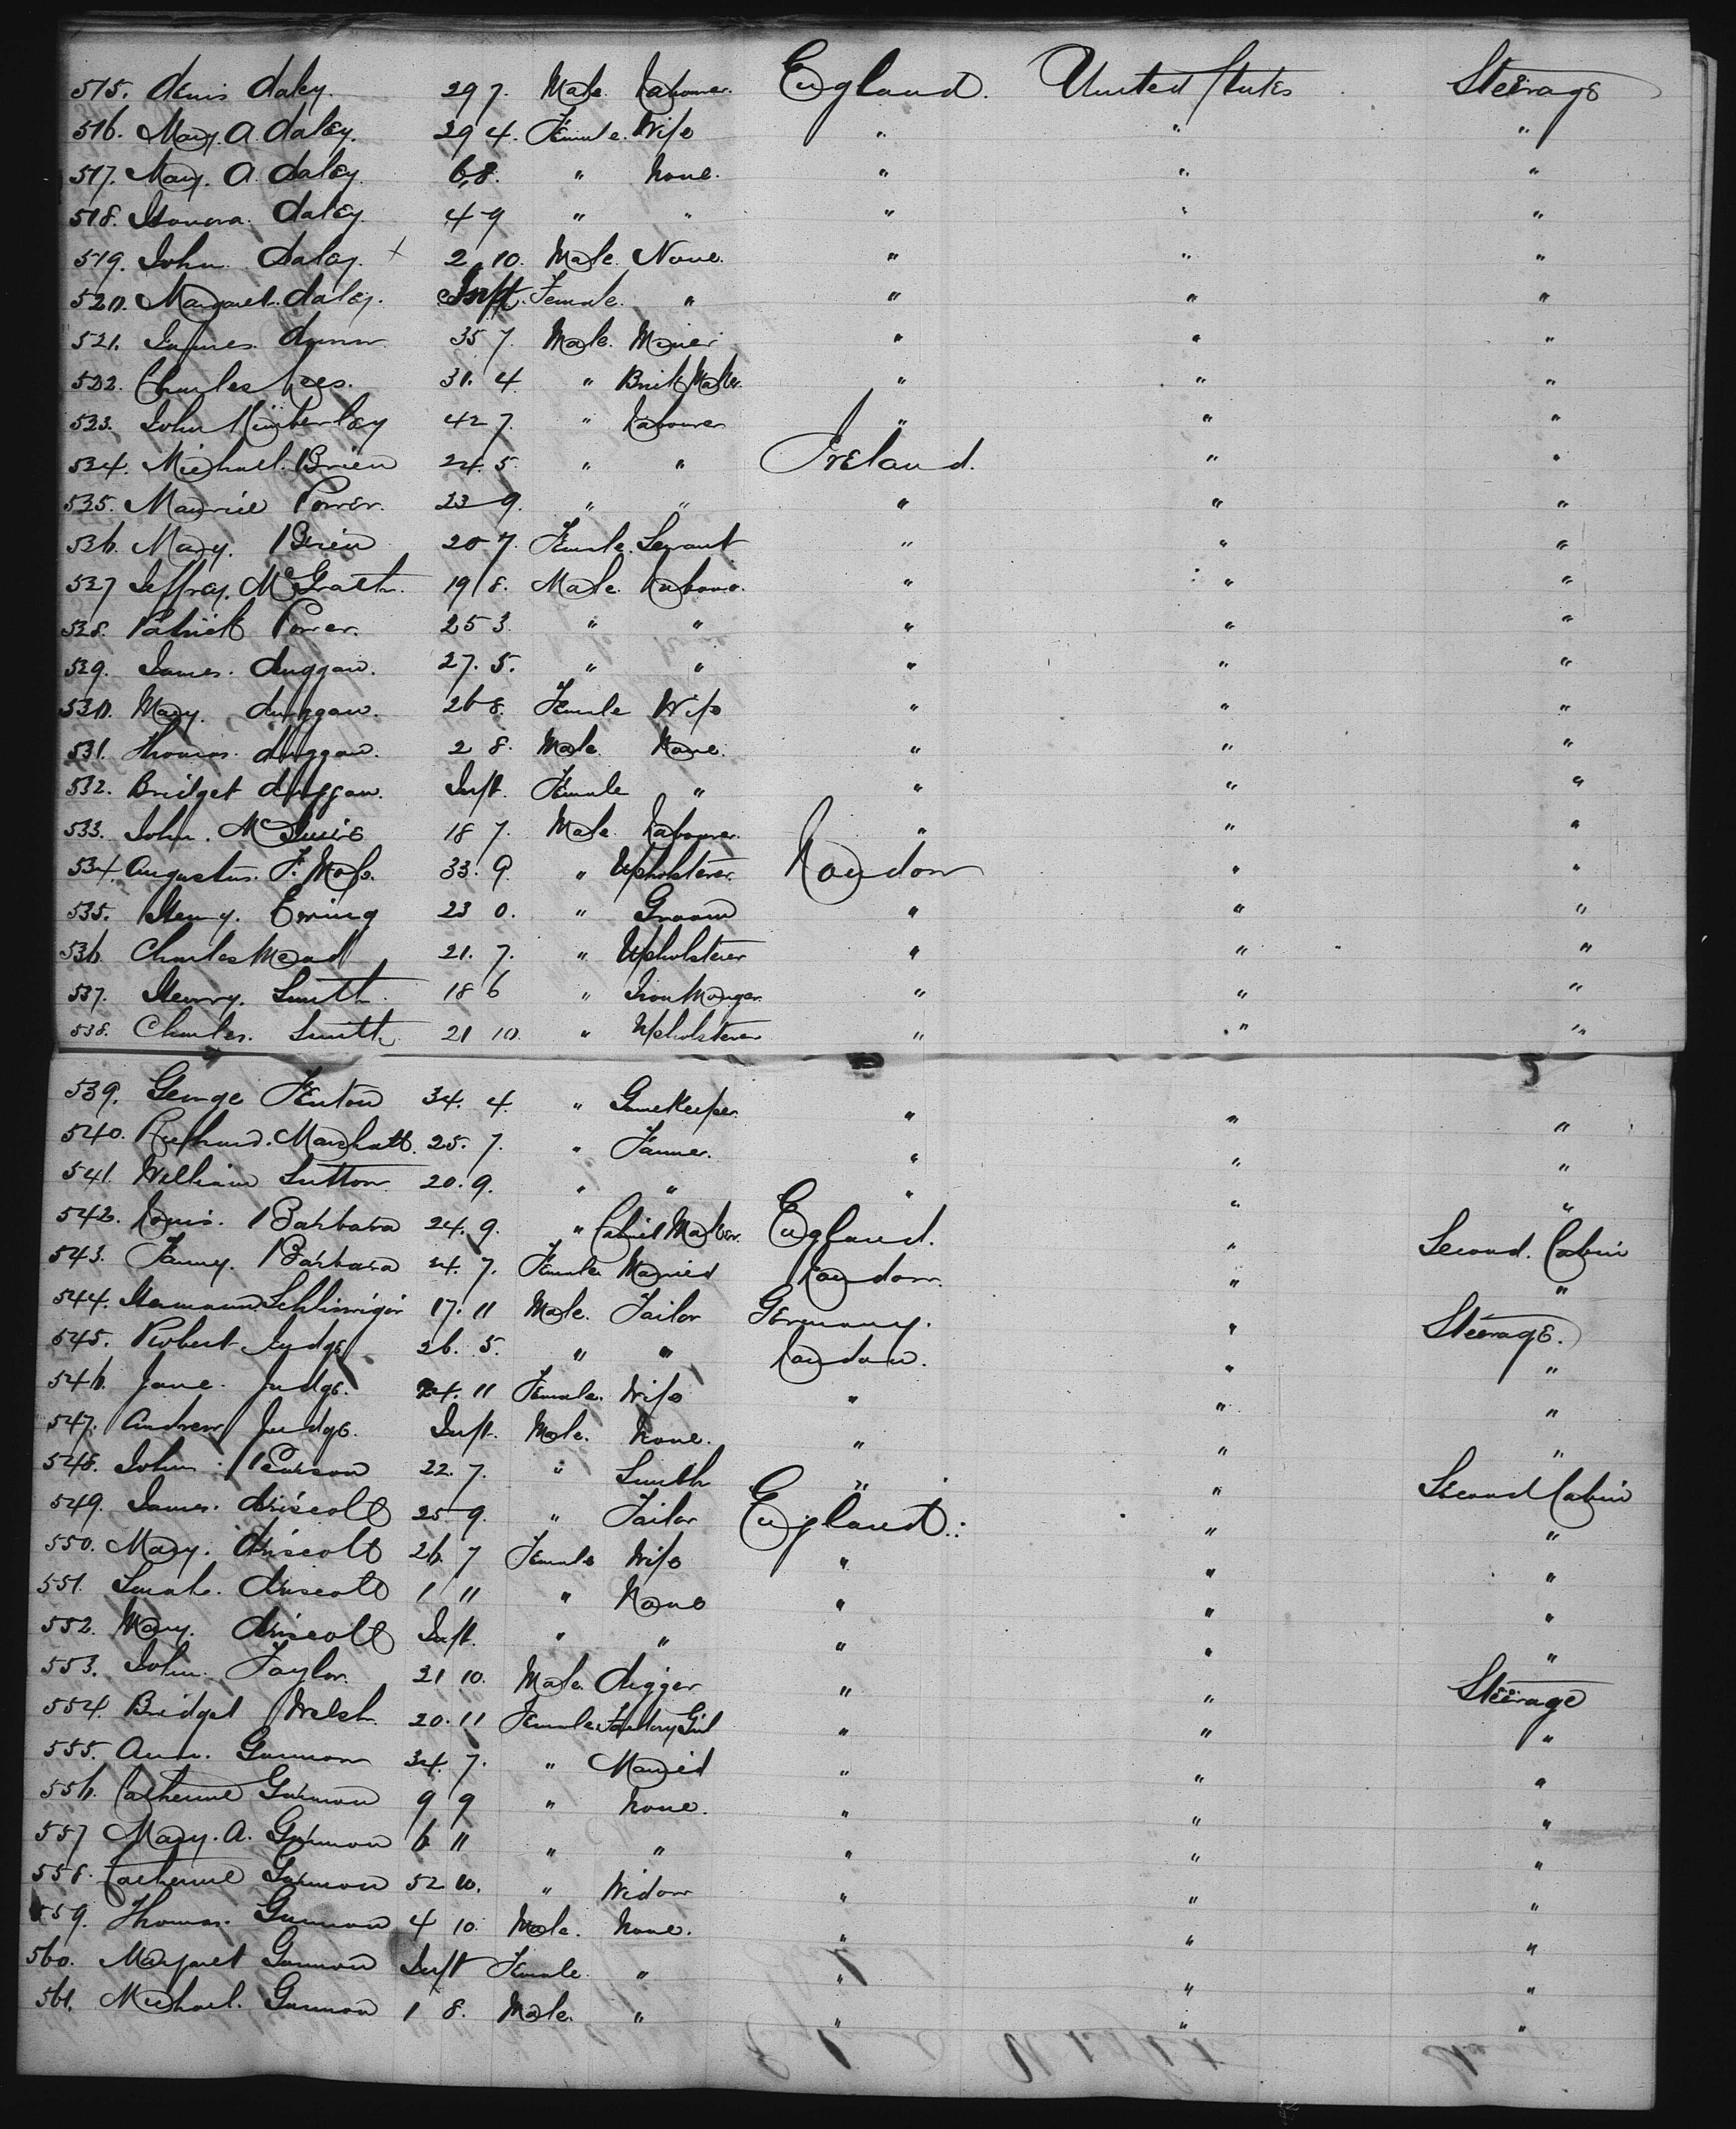 515. Denis Daley. 29 7. Male. Labourer. England. United States Steerage
516. Mary. A. Daley. 29 4. Female. Wife " " "
517. Mary. A. Daley. 6,8. " None. " " "
518. Honora. Daley. 4 9 " " " " "
519. John. Daley. + 2 10. Male. None. " " "
520. Margaret. Daley. Inft. Female. " " " "
521. James. Dunn. 35 7. Male. Miner " " "
522. Charles Lees. 31. 4 " Brick Maker. " " "
523. John Kimberley 42 7. " Labourer " " "
524. Michael. Brien 24. 5. " " Ireland. " "
525. Maurice Power. 23 9. " " " " "
526. Mary. Brien 20 7. Female. Servant " " "
527 Jeffrey. McGrath. 19 8. Male. Labour. " " "
528. Patrick Power. 25 3. " " " " "
529. James. Duggan. 27. 5. " " " " "
530. Mary. Duggan. 26 8. Female Wife " " "
531. Thomas. Duggan. 2 8. Male. None. " " "
532. Bridget Duggan. Inft. Female " " " "
533. John. McGuire 18 7. Male. Labourer. " " "
534. Augustus. F. 33. 9. " Upholsterer. London " "
535. Henry. Ewing 23 0. " Groom " " "
536. Charles Mead 21. 7. " Upholsterer " " "
537. Henry. Smith. 18 6 " Iron Monger. " " "
538. Charles. Smith. 21 10. " Upholsterer " " "
539. George Fenton 34. 4. " Gamekeeper. " " "
540. Richard. Marshall. 25. 7. " Farmer. " " "
541. William Sutton 20. 9. " " " " "
542. Louis. Barbara 24. 9. " Cabinet Maker. England. " Second. Cabin
543. Fanny. Barbara 24. 7. Female. Married London. " "
544. Hermann 17. 11 Male. Tailor Germany. " Steerage.
545. Robert Judge 26. 5. " " London. " "
546. Jane. Judge. 24. 11 Female. Wife " " "
547. Andrew Judge. Inft. Male. None. " " "
548. John. Pearson 22. 7. " Smith " " Second Cabin
549. James. Driscoll 25 9. " Tailor England. " "
550. Mary. Driscoll 26. 7 Female Wife " " "
551. Sarah. Driscoll 1 11 " None " " "
552. Mary. Driscoll Inft. " " " " "
553. John. Taylor. 21 10. Male. Digger " " Steerage
554. Bridget Welsh. 20. 11 Female. Factory Girl " " "
555. Ann. Gannon 34. 7. " Married " " "
556. Catherine Gannon 9 9 " None. " " "
557 Mary. A. Gannon 6 11 " " " " "
558. Catherine Gannon 52 10. " Widow " " "
559. Thomas. Gannon 4 10. Male. None. " " "
560. Margaret Gannon Inft Female. " " " "
561. Michael. Gannon 1 8. Male. " " " "